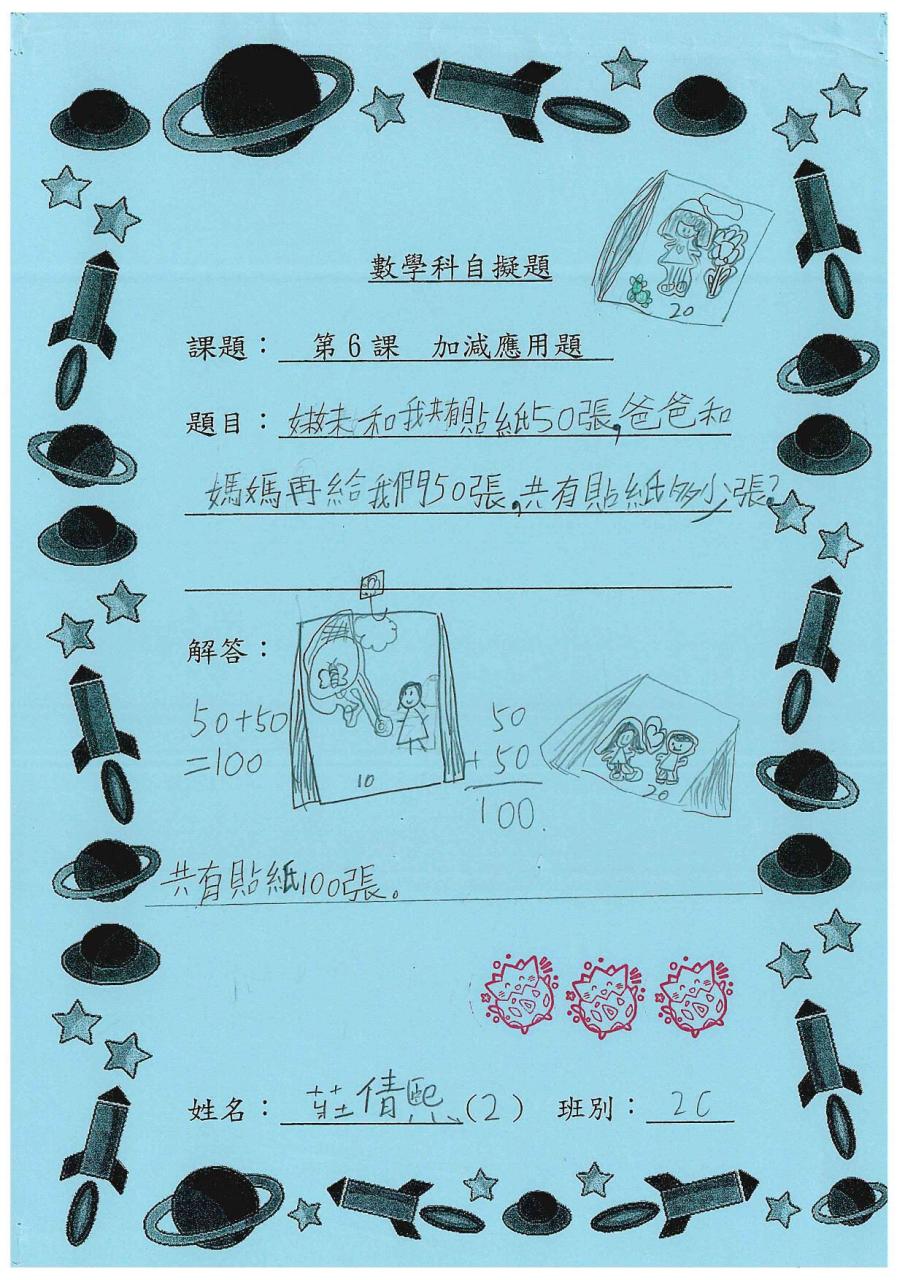 數學科自擬題
20
課題： 第6課 加減應用題
題目：妹妹和我共有貼紙50張,爸爸和
媽媽再給我們50張,共有貼紙多少張?
解答：
50+50
=100
10
50
+ 50
100
20
共有貼紙100張。
姓名： 莊倩熙(2) 班別： 2C